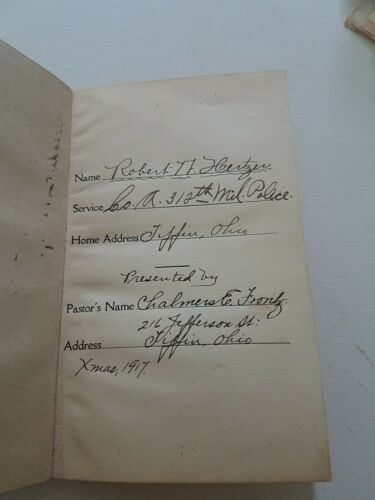 Name Robert N. Hertzer.
Service Co. A. 312th Mil. Police.
Home Address Tiffin, Ohio
Presented by
Pastor's Name Chalmers E. Frontz
216 Jefferson St.
Address Tiffin, Ohio
Xmas, 1917.